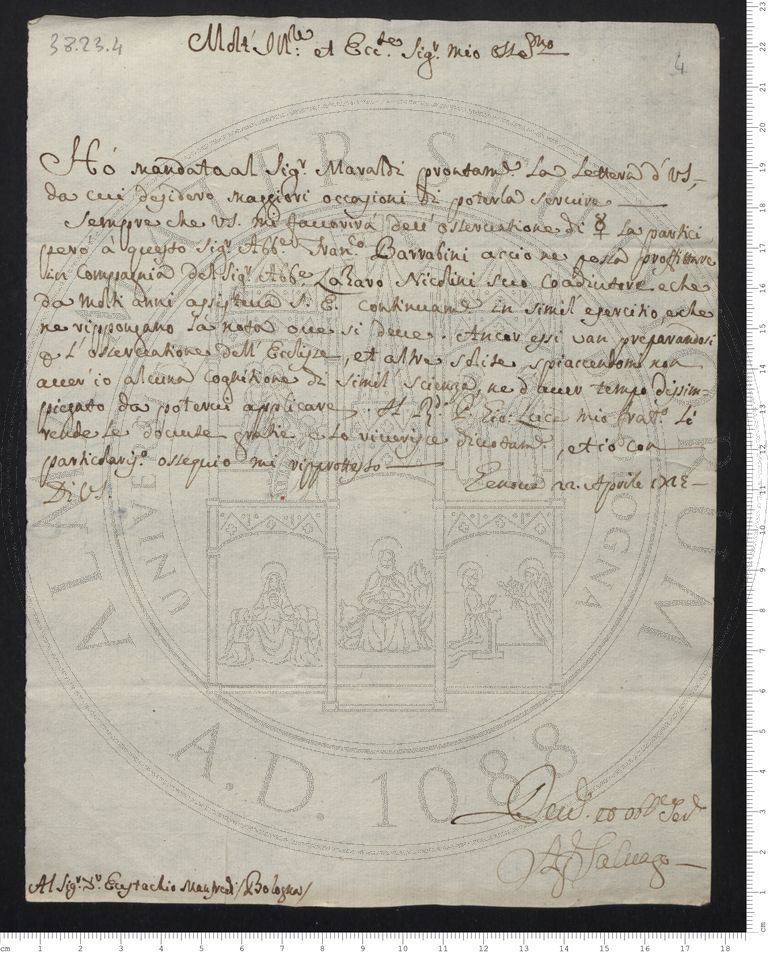 38.23.4
Molt' Ill.re et Ecc.te Sig.r mio Oss.mo
4
Hò mandata al Sig.r Maraldi prontam.e La Lettera d' VS,
da cui desidero maggiori occasioni di poterla servire
Sempre che VS. mi favorirà dell' osservatione di ☿ La partici
però à questo Sig.r Abb.e Fran.co Barrabini acciò ne possa profittare
in Compagnia del Sig.r Abb.e Lazaro Nicolini suo Coadiutore, e che
da molti anni assisteva S. E. continuam.e in simil' esercitio, e che
ne rippongano la nota ove si deve. Ancor essi van preparandosi
L' osservatione dell' Ecclisse, et altre solite, spiaccendomi non
aver' io alcuna cognitione di simil' scienza, ne d' aver tempo dissim-
piegato da potervi applicare. Il P. Gio: Luca mio frat.o Le
rende le dovute gratie e La riverisce divotam.e, et io con
particolaris.o ossequio mi ripprottesto
Di VS. Genova 22. Aprile
Salvago
Al Sig.r D.r Eustachio Manfredi /Bologna/
ALMA MATER STUDIORUM
A.D. 1088